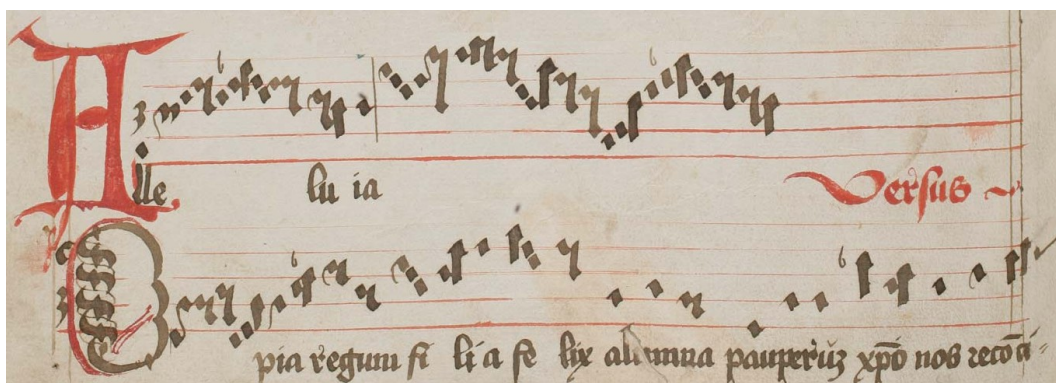 Alle lu ia Versus
O pia regum fi li a fe lix alumna pauperũ xp̃o nos recõci-